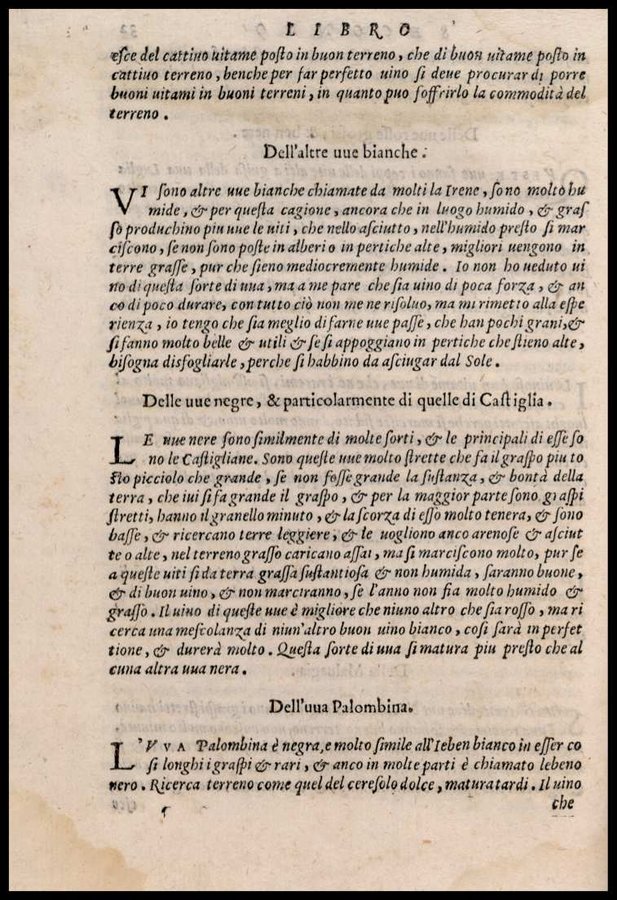 LIBRO
esce del cattiuo uitame posto in buon terreno, che di buon uitame posto in
cattiuo terreno, benche per far perfetto uino si deue procurar di porre
buoni uitami in buoni terreni, in quanto puo soffrirlo la commodità del
terreno.
Dell'altre uue bianche.
VI sono altre uue bianche chiamate da molti la Irene, sono molto hu
mide, & per questa cagione, ancora che in luogo humido, & gras
so produchino piu uue le uiti, che nello asciutto, nell'humido presto si mar
ciscono, se non sono poste in alberi o in pertiche alte, migliori uengono in
terre grasse, pur che sieno mediocremente humide. Io non ho ueduto ui
no di questa sorte di uua, ma a me pare che sia uino di poca forza, & an
co di poco durare, con tutto ciò non me ne risoluo, ma mi rimetto alla espe
rienza, io tengo che sia meglio di farne uue passe, che han pochi grani, &
si fanno molto belle & utili & se si appoggiano in pertiche che stieno alte,
bisogna disfogliarle, perche si habbino da asciugar dal Sole.
Delle uue negre, & particolarmente di quelle di Castiglia.
LE uue nere sono similmente di molte sorti, & le principali di esse so
no le Castigliane. Sono queste uue molto strette che fa il graspo piu to
sto picciolo che grande, se non fosse grande la sustanza, & bontà della
terra, che iui si fa grande il graspo, & per la maggior parte sono graspi
stretti, hanno il granello minuto, & la scorza di esso molto tenera, & sono
basse, & ricercano terre leggiere, & le uogliono anco arenose & asciut
te o alte, nel terreno grasso caricano assai, ma si marciscono molto, pur se
a queste uiti si da terra grassa sustantiosa & non humida, saranno buone,
& di buon uino, & non marciranno, se l'anno non sia molto humido &
grasso. Il uino di queste uue è migliore che niuno altro che sia rosso, ma ri
cerca una mescolanza di niun'altro buon uino bianco, cosi sarà in perfet
tione, & durerà molto. Questa sorte di uua si matura piu presto che al
cuna altra uua nera.
Dell'uua Palombina.
L'VVA Palombina è negra, e molto simile all'Ieben bianco in esser co
si longhi i graspi & rari, & anco in molte parti è chiamato lebeno
nero. Ricerca terreno come quel del ceresolo dolce, matura tardi. Il uino
che